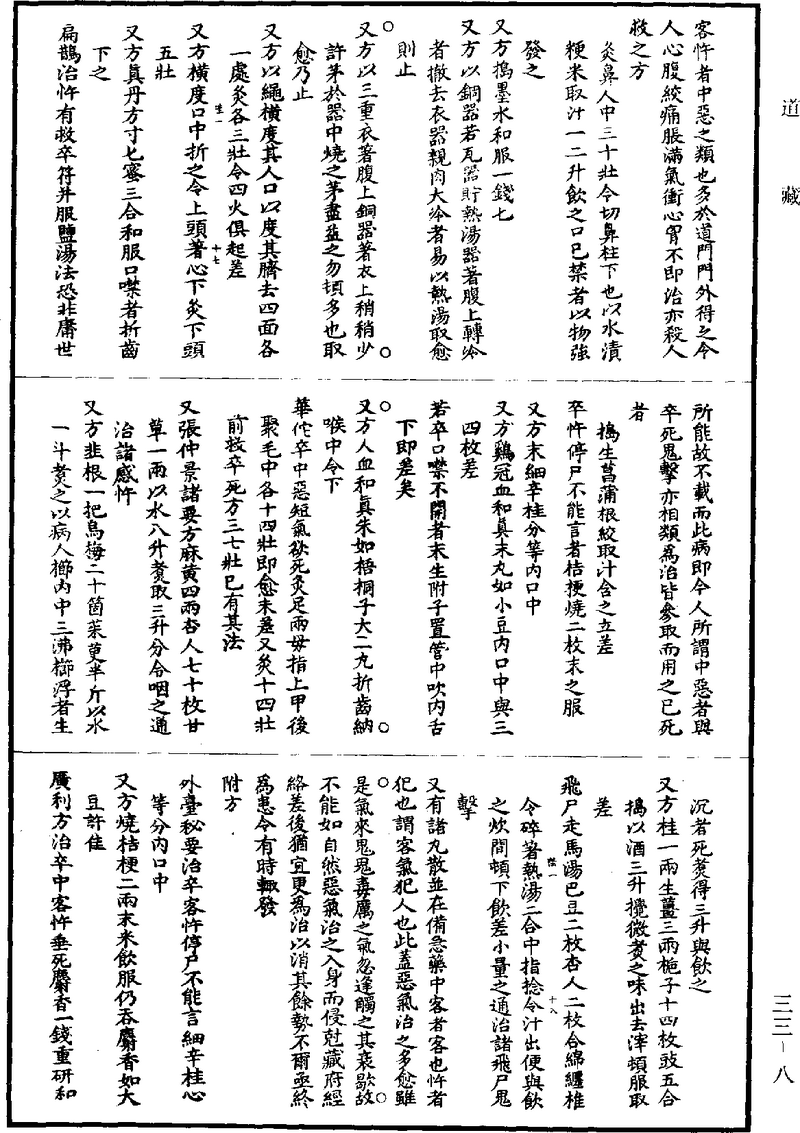 道藏
客忤者中惡之類也多於道門門外得之令
人心腹絞痛脹滿氣衝心胷不即治亦殺人
救之方
灸鼻人中三十壯令切鼻柱下也以水漬
粳米取汁一二升飲之口已禁者以物強
發之
又方搗墨水和服一錢匕
又方以銅器若瓦器貯熱湯器著腹上轉冷
者撤去衣器親肉大冷者易以熱湯取愈
則止
又方以三重衣著腹上銅器著衣上稍稍少
許茅於器中燒之茅盡益之勿頓多也取
愈乃止
又方以繩橫度其人口以度其臍去四面各
一處灸各三壯令四火俱起差
又方橫度口中折之令上頭著心下灸下頭
五壯
又方真丹方寸匕蜜三合和服口噤者折齒
下之
扁鵲治忤有救卒符并服鹽湯法恐非庸世
所能故不載而此病即今人所謂中惡者與
卒死鬼擊亦相類為治皆參取而用之已死
者
搗生菖蒲根絞取汁含之立差
卒忤停尸不能言者桔梗燒二枚末之服
又方末細辛桂分等內口中
又方鷄冠血和真末丸如小豆內口中與三
四枚差
若卒口噤不開者末生附子置管中吹內舌
下即差矣
又方人血和真朱如梧桐子大二丸折齒納
喉中令下
華佗卒中惡短氣欲死灸足兩母指上甲後
聚毛中各十四壯即愈未差又灸十四壯
前救卒死方三七壯已有其法
又張仲景諸要方麻黃四兩杏人七十枚甘
草一兩以水八升煑取三升分令咽之通
治諸感忤
又方韭根一把烏梅二十箇茱萸半斤以水
一斗煑之以病人櫛內中三沸櫛浮者生
沉者死煑得三升與飲之
又方桂一兩生薑三兩梔子十四枚豉五合
搗以酒三升攪微煑之味出去滓頓服取
差
飛尸走馬湯巴豆二枚杏人二枚合綿纏椎
令碎著熱湯二合中指捻令汁出便與飲
之炊間頓下飲差小量之通治諸飛尸鬼
擊
又有諸丸散並在備急藥中客者客也忤者
犯也謂客氣犯人也此蓋惡氣治之多愈雖
是氣來鬼鬼毒厲之氣忽逢觸之其衰歇故
不能如自然惡氣治之入身而侵尅藏府經
絡差後猶宜更為治以消其餘勢不爾亟終
為患令有時輙發
附方
外臺秘要治卒客忤停尸不能言細辛桂心
等分內口中
又方燒桔梗二兩末米飲服仍吞麝香如大
豆許佳
廣利方治卒中客忤垂死麝香一錢重研和
三三－八